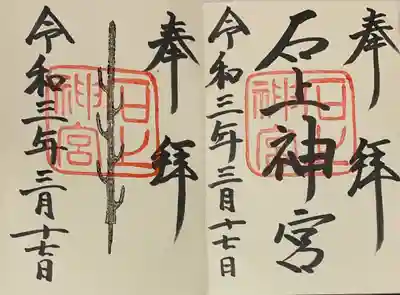 奉拝
石上神宮
令和三年三月十七日
奉拝
石上神宮
令和三年三月十七日